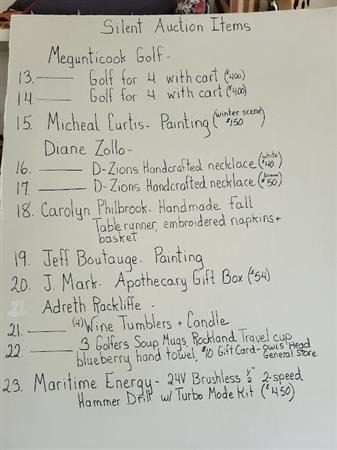 Silent Auction Items
Megunticook Golf -
13. ___ Golf for 4 with cart ($400)
14 ___ Golf for 4 with cart ($400)
15. Micheal Curtis - Painting (winter scene $150)
Diane Zollo -
16. ___ D-Zions Handcrafted necklace (white $40)
17. ___ D-Zions Handcrafted necklace ($50)
18. Carolyn Philbrook - Handmade Fall
Table runner, embroidered napkins +
basket
19. Jeff Boutauge - Painting
20. J. Mark - Apothecary Gift Box ($54)
Adreth Rackliffe -
21. ___ (4) Wine Tumblers + Candle
22. ___ 3 Golfers Soup Mugs, Rockland Travel cup
blueberry hand towel, $10 Gift Card - Owls Head
General Store
23. Maritime Energy - 24V Brushless ½" 2-speed
Hammer Drill w/ Turbo Mode Kit ($450)